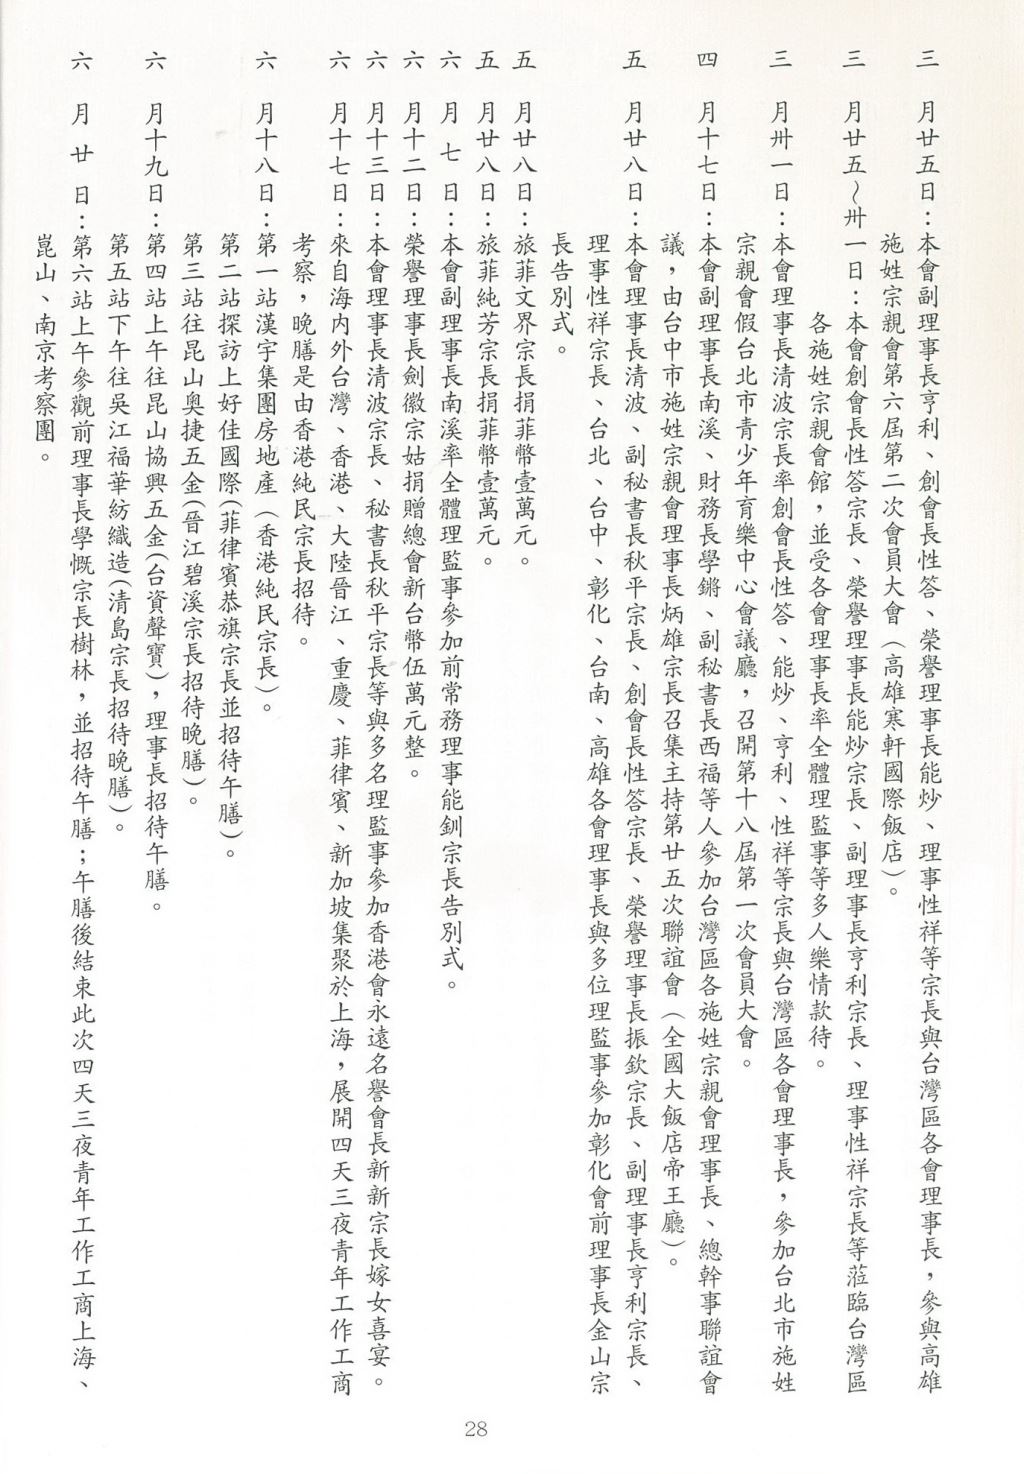 三月廿五日：本會副理事長亨利、創會長性答、榮譽理事長能炒、理事性祥等宗長與台灣區各會理事長，參與高雄
施姓宗親會第六屆第二次會員大會（高雄寒軒國際飯店）。
三月廿五～卅一日：本會創會長性答宗長、榮譽理事長能炒宗長、副理事長亨利宗長、理事性祥宗長等蒞臨台灣區
各施姓宗親會館，並受各會理事長率全體理監事等多人樂情款待。
三月卅一日：本會理事長清波宗長率創會長性答、能炒、亨利、性祥等宗長與台灣區各會理事長，參加台北市施姓
宗親會假台北市青少年育樂中心會議廳，召開第十八屆第一次會員大會。
四月十七日：本會副理事長南溪、財務長學鏘、副秘書長西福等人參加台灣區各施姓宗親會理事長、總幹事聯誼會
議，由台中市施姓宗親會理事長炳雄宗長召集主持第廿五次聯誼會（全國大飯店帝王廳）。
五月廿八日：本會理事長清波、副秘書長秋平宗長、創會長性答宗長、榮譽理事長振欽宗長、副理事長亨利宗長、
理事性祥宗長、台北、台中、彰化、台南、高雄各會理事長與多位理監事參加彰化會前理事長金山宗
長告別式。
五月廿八日：旅菲文界宗長捐菲幣壹萬元。
五月廿八日：旅菲純芳宗長捐菲幣壹萬元。
六月七日：本會副理事長南溪率全體理監事參加前常務理事能釧宗長告別式。
六月十二日：榮譽理事長劍徽宗姑捐贈總會新台幣伍萬元整。
六月十三日：本會理事長清波宗長、秘書長秋平宗長等與多名理監事參加香港會永遠名譽會長新新宗長嫁女喜宴。
六月十七日：來自海內外台灣、香港、大陸晉江、重慶、菲律賓、新加坡集聚於上海，展開四天三夜青年工作工商
考察，晚膳是由香港純民宗長招待。
六月十八日：第一站漢宇集團房地產（香港純民宗長）。
第二站探訪上好佳國際（菲律賓恭旗宗長並招待午膳）。
第三站往昆山奧捷五金（晉江碧溪宗長招待晚膳）。
六月十九日：第四站上午往昆山協興五金（台資聲寶），理事長招待午膳。
第五站下午往吳江福華紡織造（清島宗長招待晚膳）。
六月廿日：第六站上午參觀前理事長學慨宗長樹林，並招待午膳；午膳後結束此次四天三夜青年工作工商上海、
崑山、南京考察團。
28